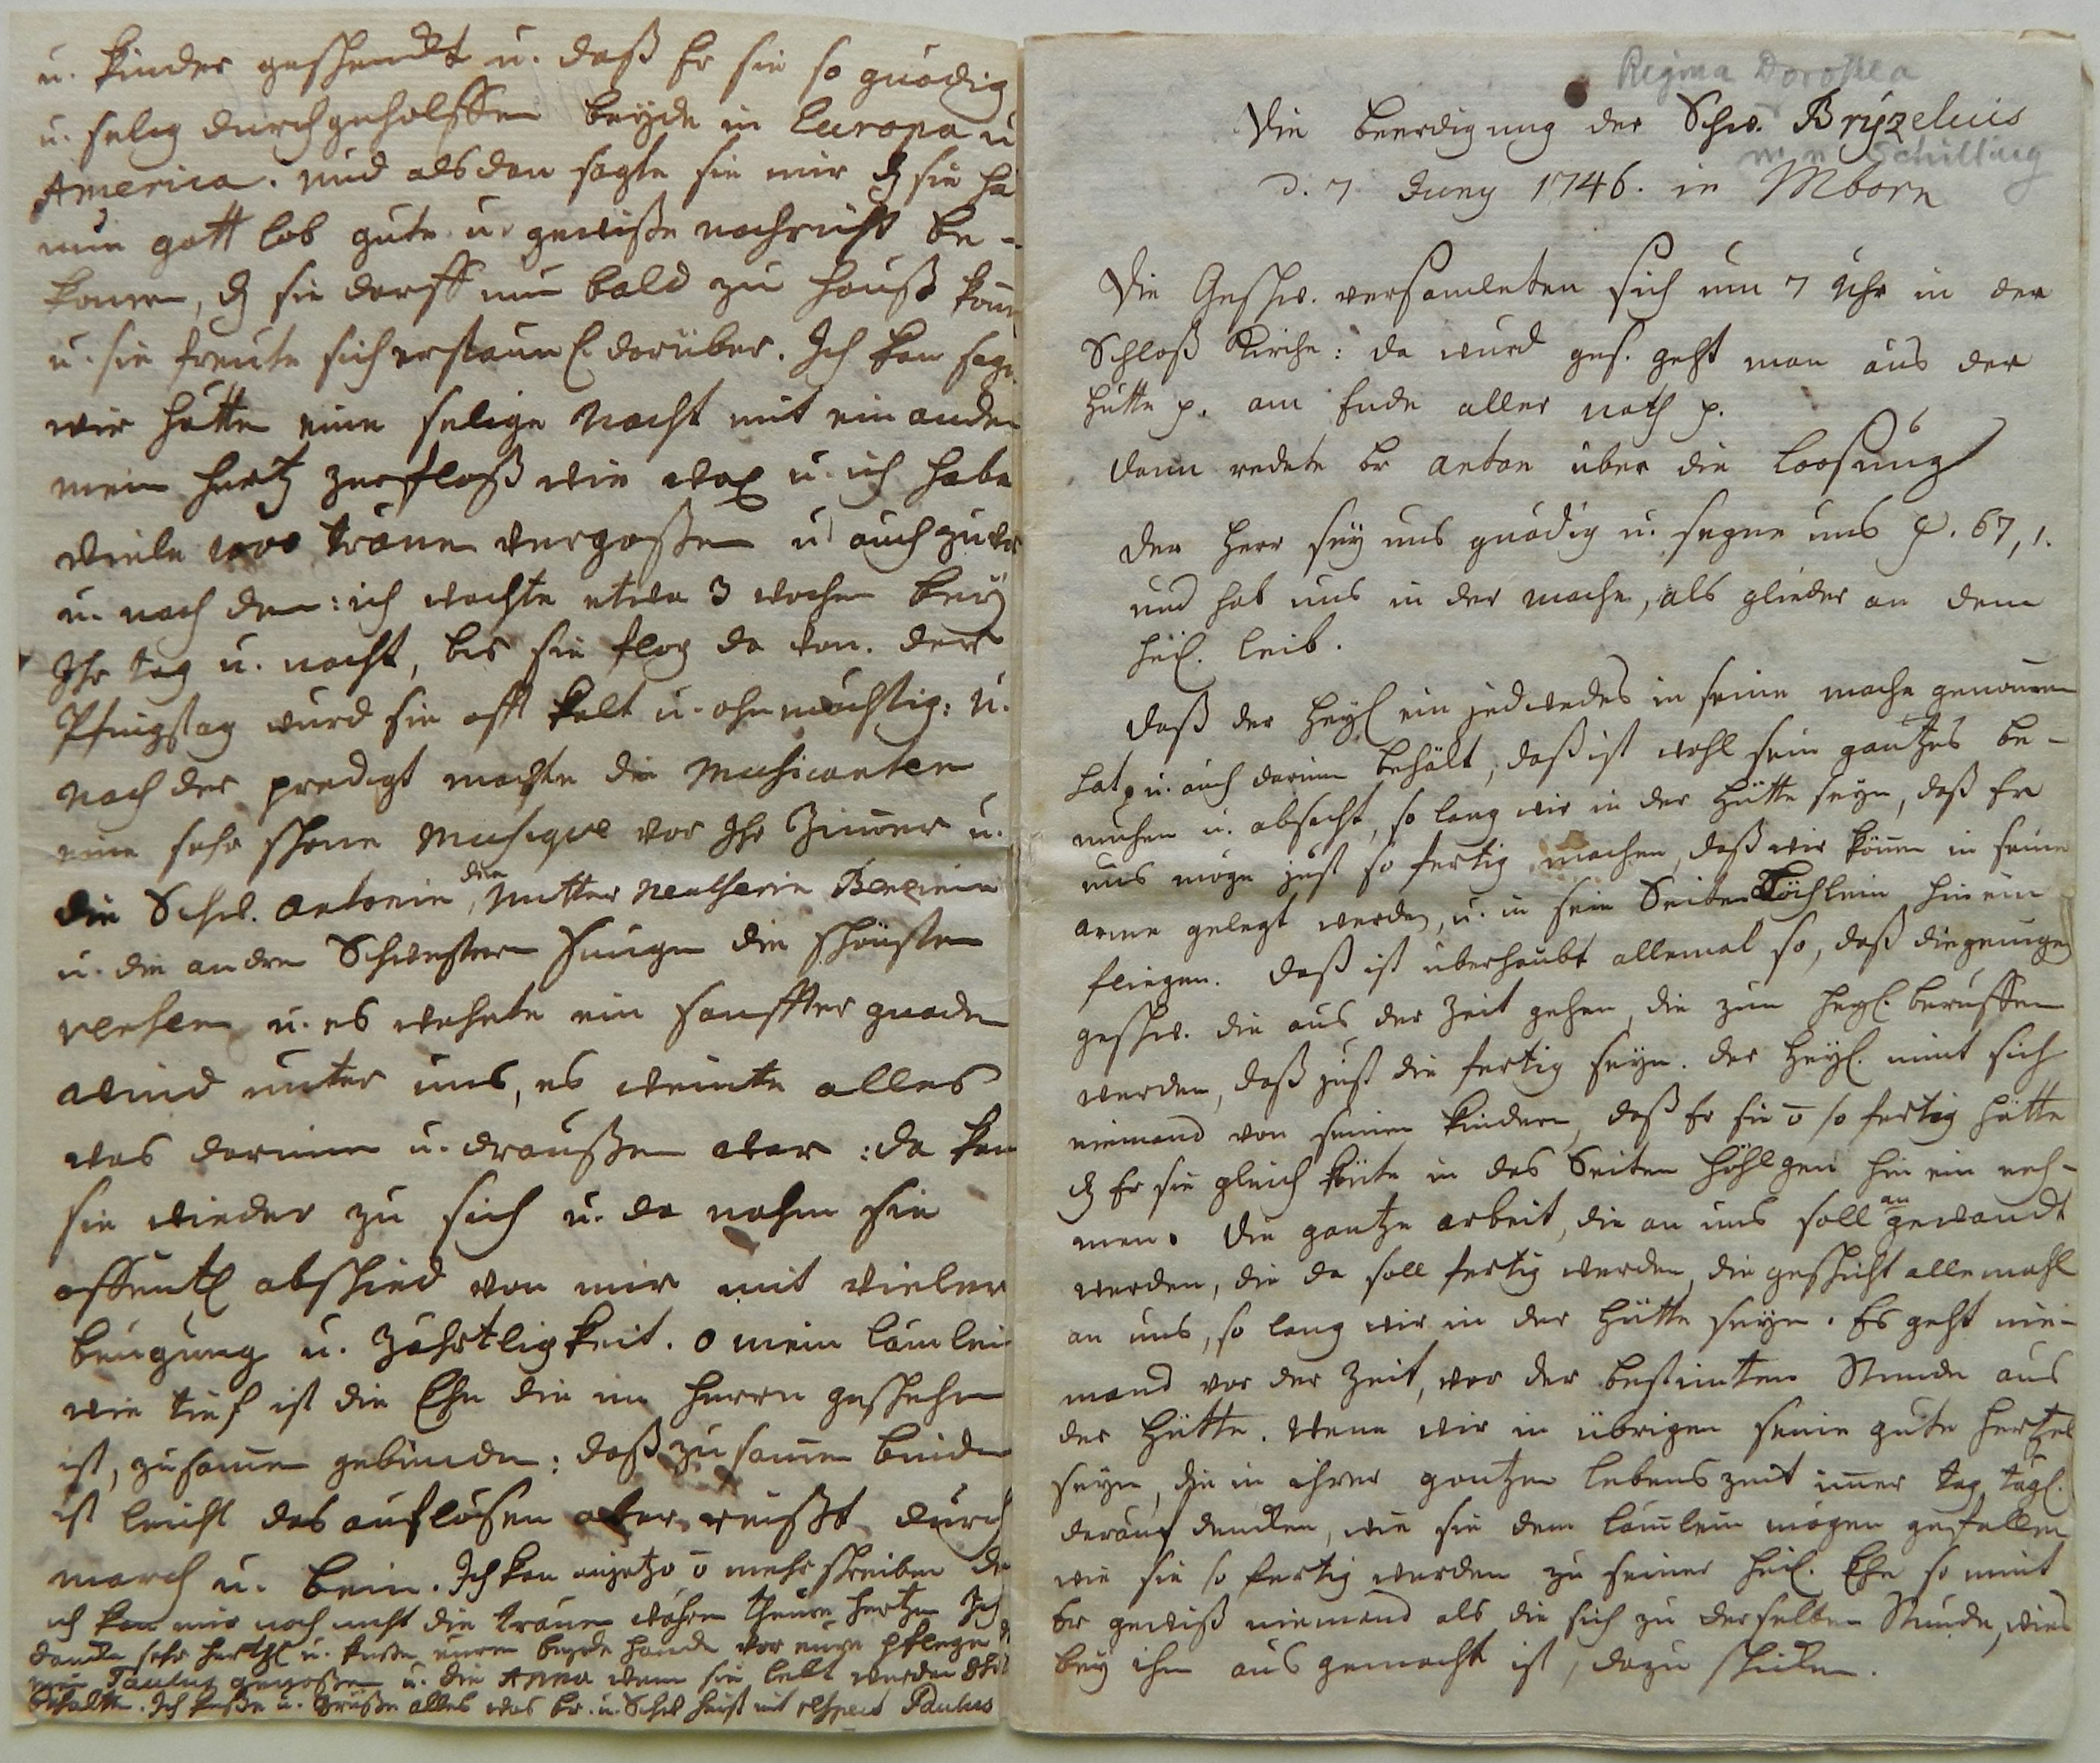 u. Kinder geschenckt u. daß Er sie so gnädig
u. selig durchgeholffen beyde in Europa u
America. und alsdan sagte sie mir dz sie hä
nun gott lob gute u. gewiße nachricht be-
komen, dz sie dorff nun bald zu Hauß kom
u. sie freute sich erstaunl. darüber. Ich kan sagn
wir hatten eine selige Nacht mit einander
mein Hertz zerfloß wie wax u. ich habe
viele 1000 tränen vergoßen u auch zuvor
u. nach dem: ich wachte etwa 3 wochen bey
Ihr tag u. nacht, bis sie flog da von. den
Pfingstag wurd sie offt kalt u. ohnmächtig: u.
nach der predigt machte die Musicanten
eine sehr schöne Musique vor Ihr Zimer u.
die Schw. Antonin, die Mutter Neusserin Benzien
u. die andren Schwestern sungen die schönsten
versen u. es wehete ein sanffter gnaden
wind unter uns, es weinte alles
was darinnen u. draußen war: da kam
sie wieder zu sich u. da nahm sie
offentl abschied von mir mit vieler
beugung u. Zährtligkeit. o mein Lämlein
wie tief ist die Ehe die im Herrn geschehen
ist, zusamen gebunden: daß zusamen binden
ist leicht das auflösen aber reißt durch
march u. bein. Ich kan anjetzo o mehr schreiben de
ich kan mir noch nicht die tränen währen theure Hertzen Ich
dancke sehr hertzl u. küße euren beyde hände vor eure pflege
mein Paulus genoßen u. die Anna wenn sie lebt werden
behalten. Ich küße u. Grüße alles was br. u. Schw heist mit respect Paulus
Regina Dorothea
Die Beerdigung der Schw. Bryzelius
m. n. Schilling
d. 7 Juny 1746. in Mborn
Die Geschw. versamleten sich um 7 Uhr in der
Schloß Kirche: da wurd ges. geht man aus der
Hütte p. am Ende aller noth p.
Denn redete br Anton über die Loosung
Der Herr sey uns gnädig u. segne uns ψ. 67, 1.
und hab uns in der mache, als glieder an dem
heil. Leib.
Daß der Heyl ein jedwedes in seine mache genommen
hat, u. auch darinn behält, daß ist wohl sein gantzes be-
mühen u. absicht, so lang wir in der Hütte seyn, daß Er
uns möge just so fertig machen, daß wir können in seine
arme gelegt werden, u. in sein Seiten Löchlein hinein
fliegen. Daß ist überhaubt allemal so, daß diegenigen
geschw. die aus der Zeit gehen, die zum Heyl. beruffen
werden, daß just die fertig seyn. der Heyl. nimt sich
niemand von seinen Kindern, daß Er sie o so fertig hätte
dz Er sie gleich könte in das Seiten Höhlgen hin ein neh-
men. Die gantze arbeit, die an uns soll an gewandt
werden, die da soll fertig werden, die geschicht allemahl
an uns, so lang wir in der Hütte seyn. Es geht nie-
mand vor der Zeit, vor der bestimten Stunde aus
der Hütte. Wenn wir in übrigen seine gute Hertzel
seyn, die in ihrer gantzen Lebens zeit immer tag tägl.
darauf dencken, wie sie dem Lämlein mögen gefallen
wie sie so fertig werden zu seiner heil. Ehe so nimt
Er gewiß niemand als die sich zu derselben Stunde, wies
bey ihm ausgemacht ist, dazu schicken.